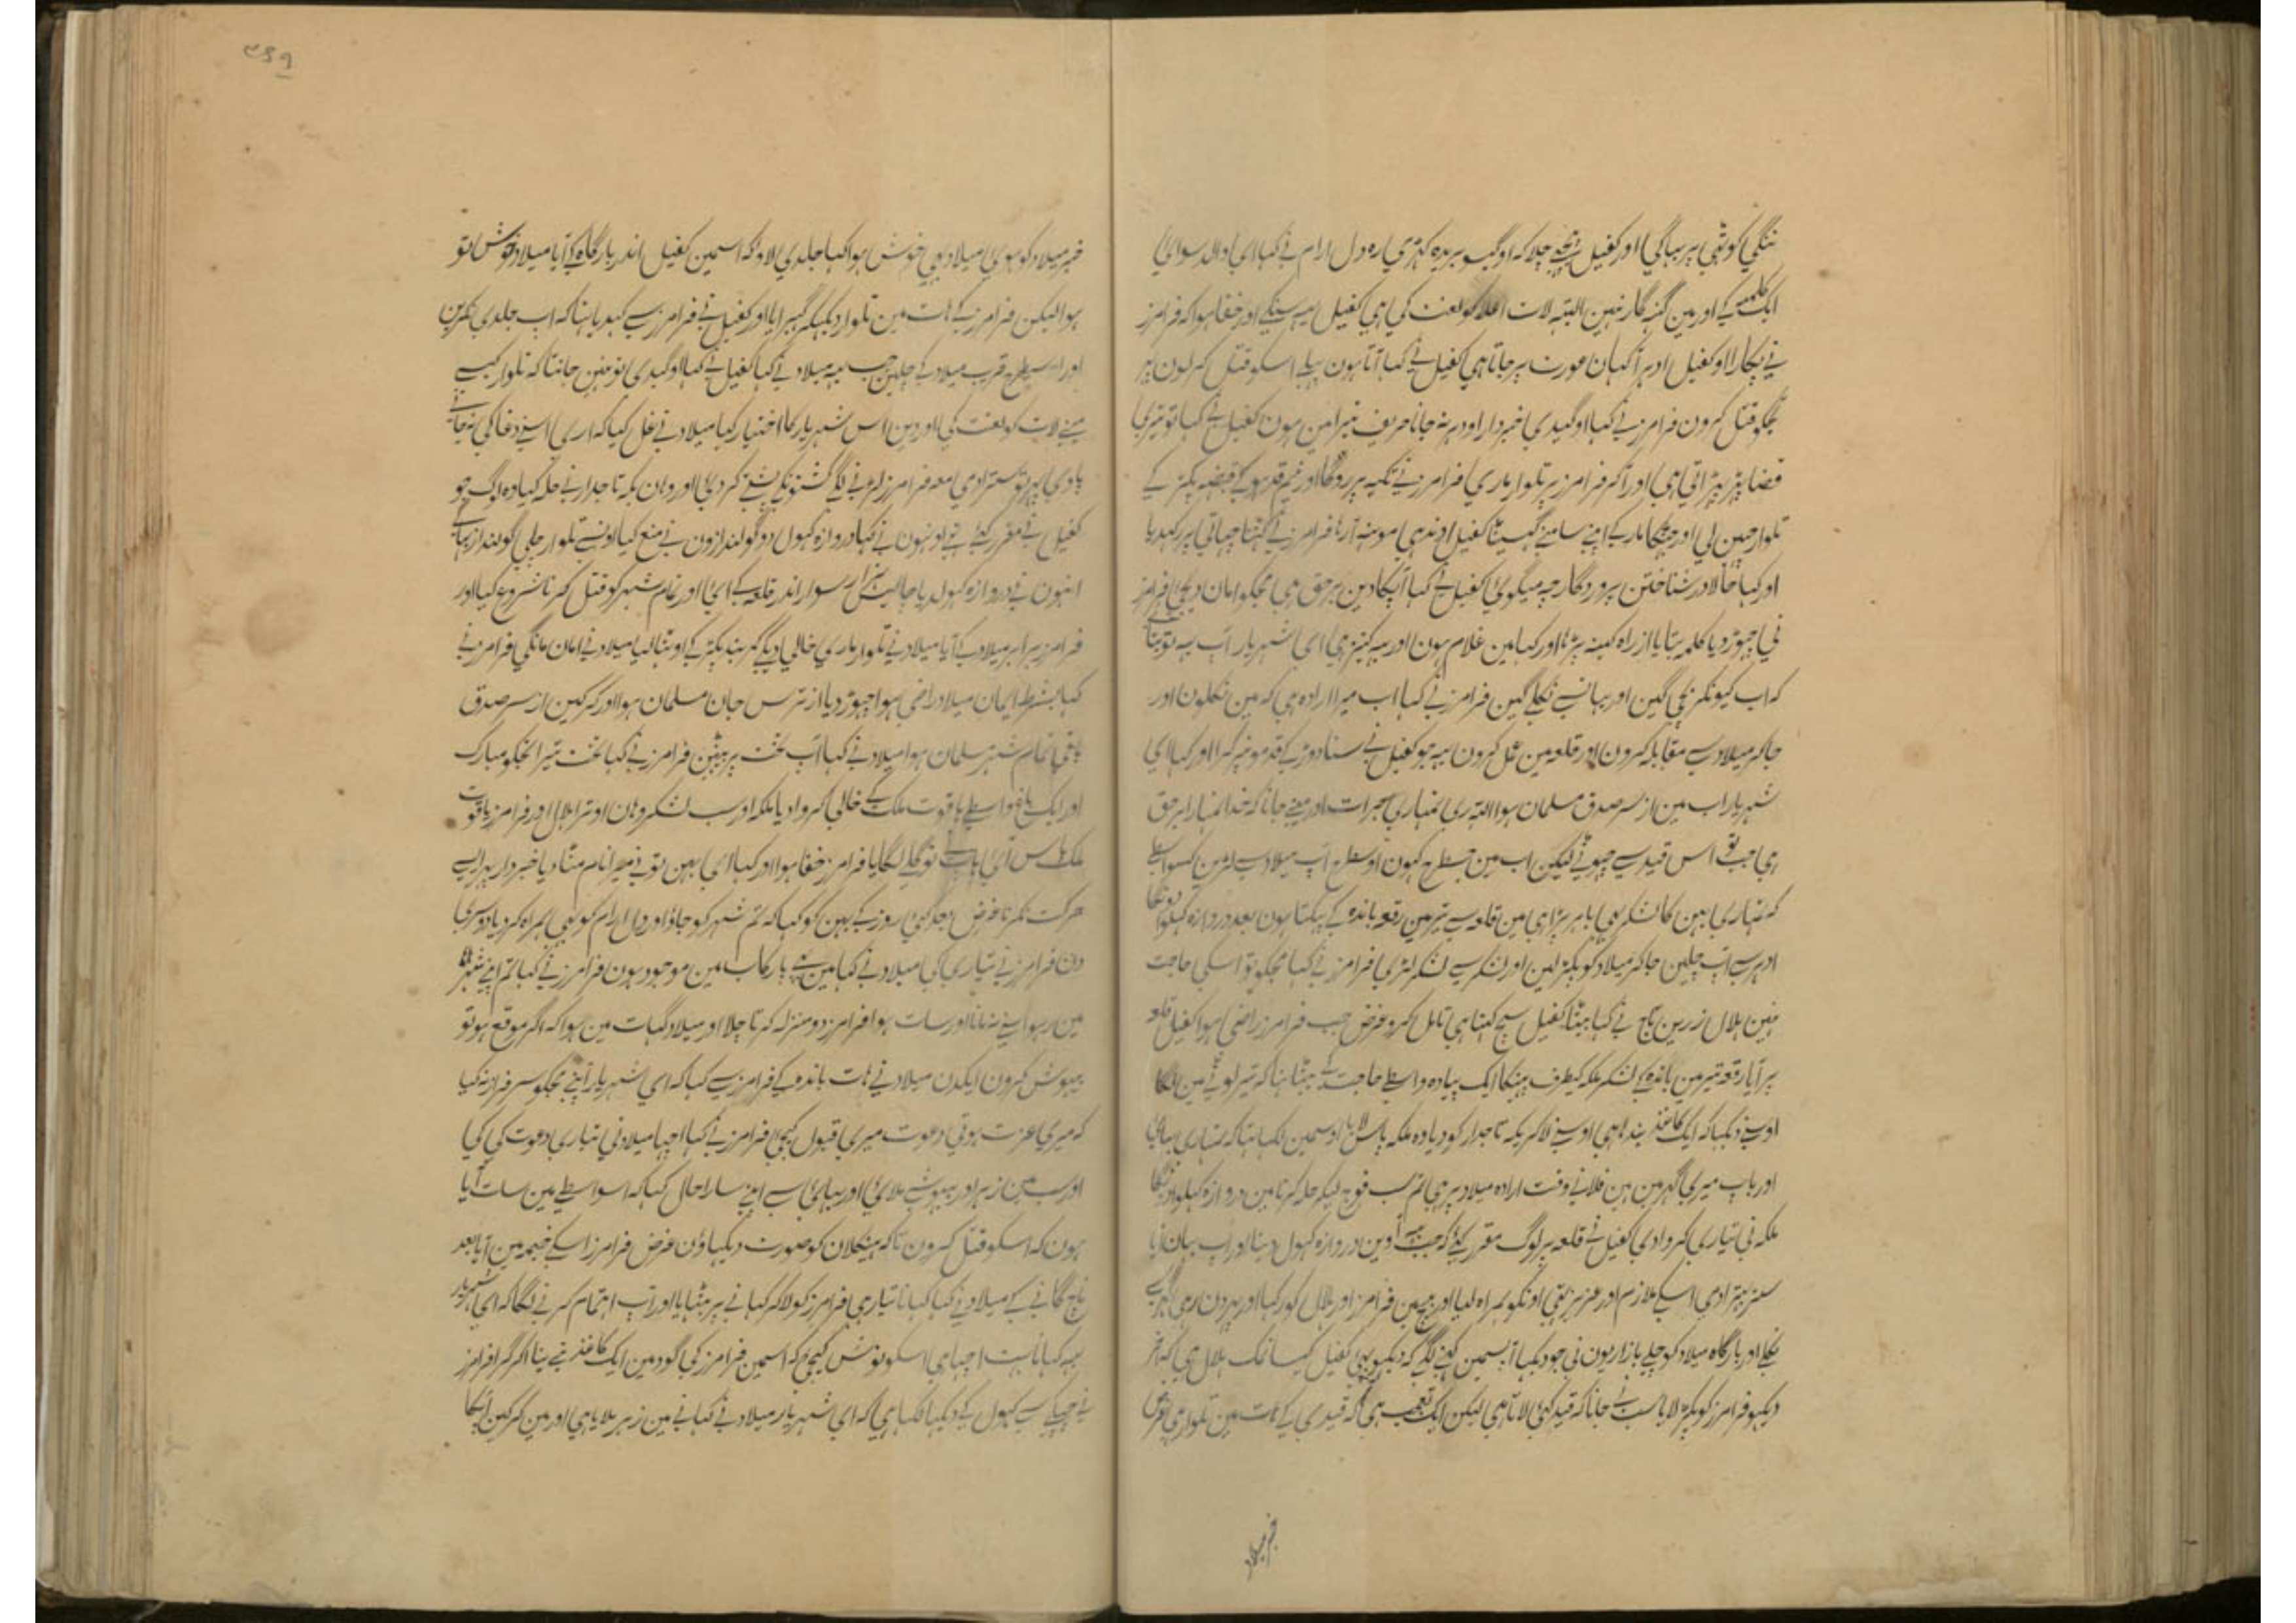 ننگی کوٹھی پر بہاگی اور کفیل پیچھے چلا کہ او گیسو بریدہ کہڑی رہ دل ارام نے کہا ای دلال سوای
ایک کلمے کے اور مین گنہگار نہین البتہ لات اعلا کو لعنت کی ہی کفیل یہہ سنکے اور خفا ہوا کہ فرامرز
نے پکارا او کفیل ادہر آ کہان عورت پر جاتا ہی کفیل نے کہا آتا ہون پہلے اسکو قتل کر لون پہر
تجکو قتل کرون فرامرز نے کہا او گیدی خبردار اودہر نہ جانا حریف تیرا مین ہون کفیل نے کہا تو تیری
قضا پہڑ پہڑاتی ہی اور آکر فرامرز پر تلوار ماری فرامرز نے تکیہ پر روکا اور خم قد ہو کے قبضہ پکڑ کے
تلوار چہین لی اور جہٹکا مار کے اپنے سامنے گہسیٹا کفیل اوندہی مونہہ آرہا فرامرز نے گہٹنا چہاتی پر رکہدیا
اور کہا حالا در شناختن پروردگار چہ میگوئی کفیل نے کہا آپکا دین برحق ہی مجکو امان دیجئی فرامرز
نی چہوڑ دیا کلمہ بتایا از راہ کینہ پڑہا اور کہا مین غلام ہون اور یہہ کنیز ہی ای شہریار اب یہہ تو بتائے
کہ اب کیونکر بچی گین اور یہانسے نکلے گین فرامرز نے کہا اب میرا ارادہ ہی کہ مین نکلون اور
جاکر میلاد سے مقابلہ کرون اور قلعہ مین عمل کرون یہہ جو کفیل نے سنا دوڑ کے قدمونپر گرا اور کہا ای
شہریار اب مین از سر صدق مسلمان ہوا اللہ ری تمہاری جرات اور مینے جانا کہ خدا تمہارا برحق
ہی جب تو اس قید سے چہوٹے لیکن اب مین جسطرح کہون اوسطرح آپ میلاد سے لڑین کسواسطے
کہ تمہاری بہن کا لشکر بہی باہر پڑا ہی مین قلعہ سے تیر مین رقعہ باندہ کے پہیکتا ہون بعد دروازہ کہلوا دونگا
ادہر سے آپ چلین جاکر میلاد کو پکڑ لین اور لشکر سے لشکر لڑی فرامرز نے کہا مجکو تو اسکی حاجت
نہین ہلال زرین تاج نے کہا بیٹا کفیل سچ کہتا ہی تامل کرو غرض جب فرامرز راضی ہوا کفیل قلعہ
پر آیا رقعہ تیر مین باندہ کے لشکر ملکہ کیطرف پہینکا ایک پیادہ واسطے حاجت کے بیٹہا تہا کہ تیر لوٹے مین لگا
اوسنے دیکہا کہ ایک کاغذ بندہا ہی اوسنے لاکر یکہ تاجدار کو دیا وہ ملکہ پاس لایا اوسمین لکہا تہا کہ تمہاری بہائی
اور باپ میری گہر مین ہین فلانے وقت ارادہ میلاد پر ہی تم سب فوج لیکر حملہ کرنا مین دروازہ کہلوا دونگا
ملکہ نی تیاری کروادی کفیل نے قلعہ پر لوگ مقرر کئے کہ جب یہہ آوین دروازہ کہول دینا اور آپ یہان آیا
ستر بہتر ادمی اسکے ملازم اور عزیز تہی اونکو ہمراہ لیا اور بیچ مین فرامرز اور ہلال کو رکہا اور پہر دن رہی گہر سے
نکلے اور بارگاہ میلاد کو چلے بازاریون نی جو دیکہا آپسمین کہنے لگے کہ دیکہو بہئی کفیل کیسا نمک ہلال ہی کہ آخر
دیکہو فرامرز کو پکڑ لایا سب نے جانا کہ قید کئی لاتا ہی لیکن ایک تعجب ہی کہ قیدی کے ہات مین تلوار ہی غرض
خبر میلاد
۳۶۹
خبر میلاد کو ہوئی میلاد بہی خوش ہوا کہا جلدی لاو کہ اسمین کفیل اندر بارگاہ کے آیا میلاد خوش تو
ہوا لیکن فرامرز کے ہات مین تلوار دیکہکر گہبرایا اور کفیل نے فرامرز سے کہدیا تہا کہ اب جلدی نکرین
اور اسیطرح قریب میلاد کے چلین جب یہہ میلاد نے کہا کفیل نے کہا او گیدی تو نہین جانتا کہ تلوار کیسے
مینے لات کو لعنت کی اور دین اس شہریار کا اختیار کیا میلاد نے غل کیا کہ اری اسنے دغا کی نہ جانے
پاوی پہر تو ستر ادمی معہ فرامرز لڑنے لگے کشتونکے پشتے کر دئے اور وہان یکہ تاجدار نے حملہ کیا وہ لوگ جو
کفیل نے مقرر کئے تہے اونہون نے کہا دروازہ کہول دو گولندازون نے منع کیا اونسے تلوار چلی گولنداز بہاگے
انہون نے دروازہ کہولدیا چالیس ہزار سوار اندر قلعہ کے آئی اور تمام شہر کو قتل کرنا شروع کیا اور
فرامرز برابر میلاد کے آیا میلاد نے تلوار ماری خالی دیکے کمربند پکڑ کے اوٹہا لیا میلاد نے امان مانگی فرامرز نے
کہا بشرط ایمان میلاد راضی ہوا چہوڑ دیا از ترس جان مسلمان ہوا اور گرگین از سر صدق
باقی تمام شہر مسلمان ہوا میلاد نے کہا آپ تخت پر بیٹہین فرامرز نے کہا تخت تیرا تجکو مبارک
اور ایک باغ واسطے یاقوت ملک کے خالی کروا دیا ملکہ اور سب لشکر وہان اوترا ہلال اور فرامرز یاقوت
ملک پاس آئی باپ نے تو گلے لگایا فرامرز خفا ہوا اور کہا ای بہن تو نے میرا نام مٹا دیا خبردار پہر ایسے
حرکت نکرنا غرض بعد کئی روز کے بہن کو کہا کہ تم شہر کو جاؤ اور دل ارام کو بہی ہمراہ کر دیا دوسری
دن فرامرز نے تیاری کی میلاد نے کہا مین بہی رکاب مین موجود ہون فرامرز نے کہا تم اپنے شہر
مین رہو اسنے نہ مانا اور سات ہوا فرامرز دو منزلہ کرتا چلا اور میلاد گہات مین ہوا کہ اگر موقع ہو تو
بیہوش کرون ایکدن میلاد نے ہات باندہ کے فرامرز سے کہا کہ ای شہریار آپنے مجکو سرفراز نہ کیا
کہ میری عزت ہوتی دعوت میری قبول کیجئے فرامرز نے کہا اچہا میلاد نی تیاری دعوت کی کی
اور سب مین زہر اور بیہوشے ملائی اور بہائی سے اپنے سارا حال کہا کہ اسواسطے مین سات آیا
ہون کہ اسکو قتل کرون تاکہ ہیکلان کو صورت دیکہاؤن غرض فرامرز اسکے خیمہ مین آیا بعد
ناچ گانے کے میلاد نے کہا کہانا تیار ہی فرامرز کو لاکر کہانے پر بٹہایا اور آپ اہتمام کرنے لگا کہ ای شہریار
یہہ کہانا بہت اچہا ہی اسکو نوش کیجئے کہ اسمین فرامرز کی گود مین ایک کاغذ نے بنا آکر گرا فرامرز
نے چپکے سے کہول کے دیکہا لکہا ہی کہ ای شہریار میلاد نے کہانے مین زہر ملایا ہی اور مین گرگین اسکا